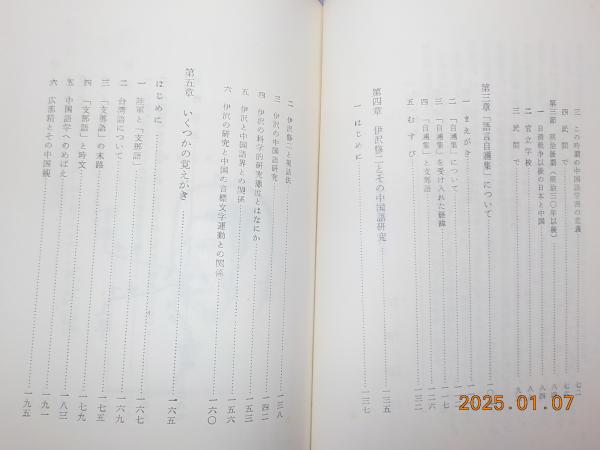 三　この時期の中国語学習の意義
四　民間で
第三節　明治後期（明治三〇年以後）
一　日清戦争以後の日本と中国
二　官立学校
三　民間で
第三章　「語言自邇集」について
一　まえがき
二　「自邇集」について
三　「自邇集」を受け入れた経緯
四　「自邇集」と支那語 一三二
五　むすび 一三五
第四章　伊沢修二とその中国語研究
一　はじめに 一三七
二　伊沢修二と視話法 一三八
三　伊沢の中国語研究 一四二
四　伊沢の科学的研究態度とはなにか 一五三
五　伊沢と中国語界との関係 一五六
六　伊沢の研究と中国の音標文字運動との関係 一六〇
第五章　いくつかの覚えがき 一六五
はじめに
一　陸軍と「支那語」 一六七
二　台湾語について 一六九
三　「支那語」の末路 一七五
四　「支那語」と時文 一七九
五　中国語学へのめばえ 一八三
六　広部精とその中国観 一九一
一九五
2025.01.07